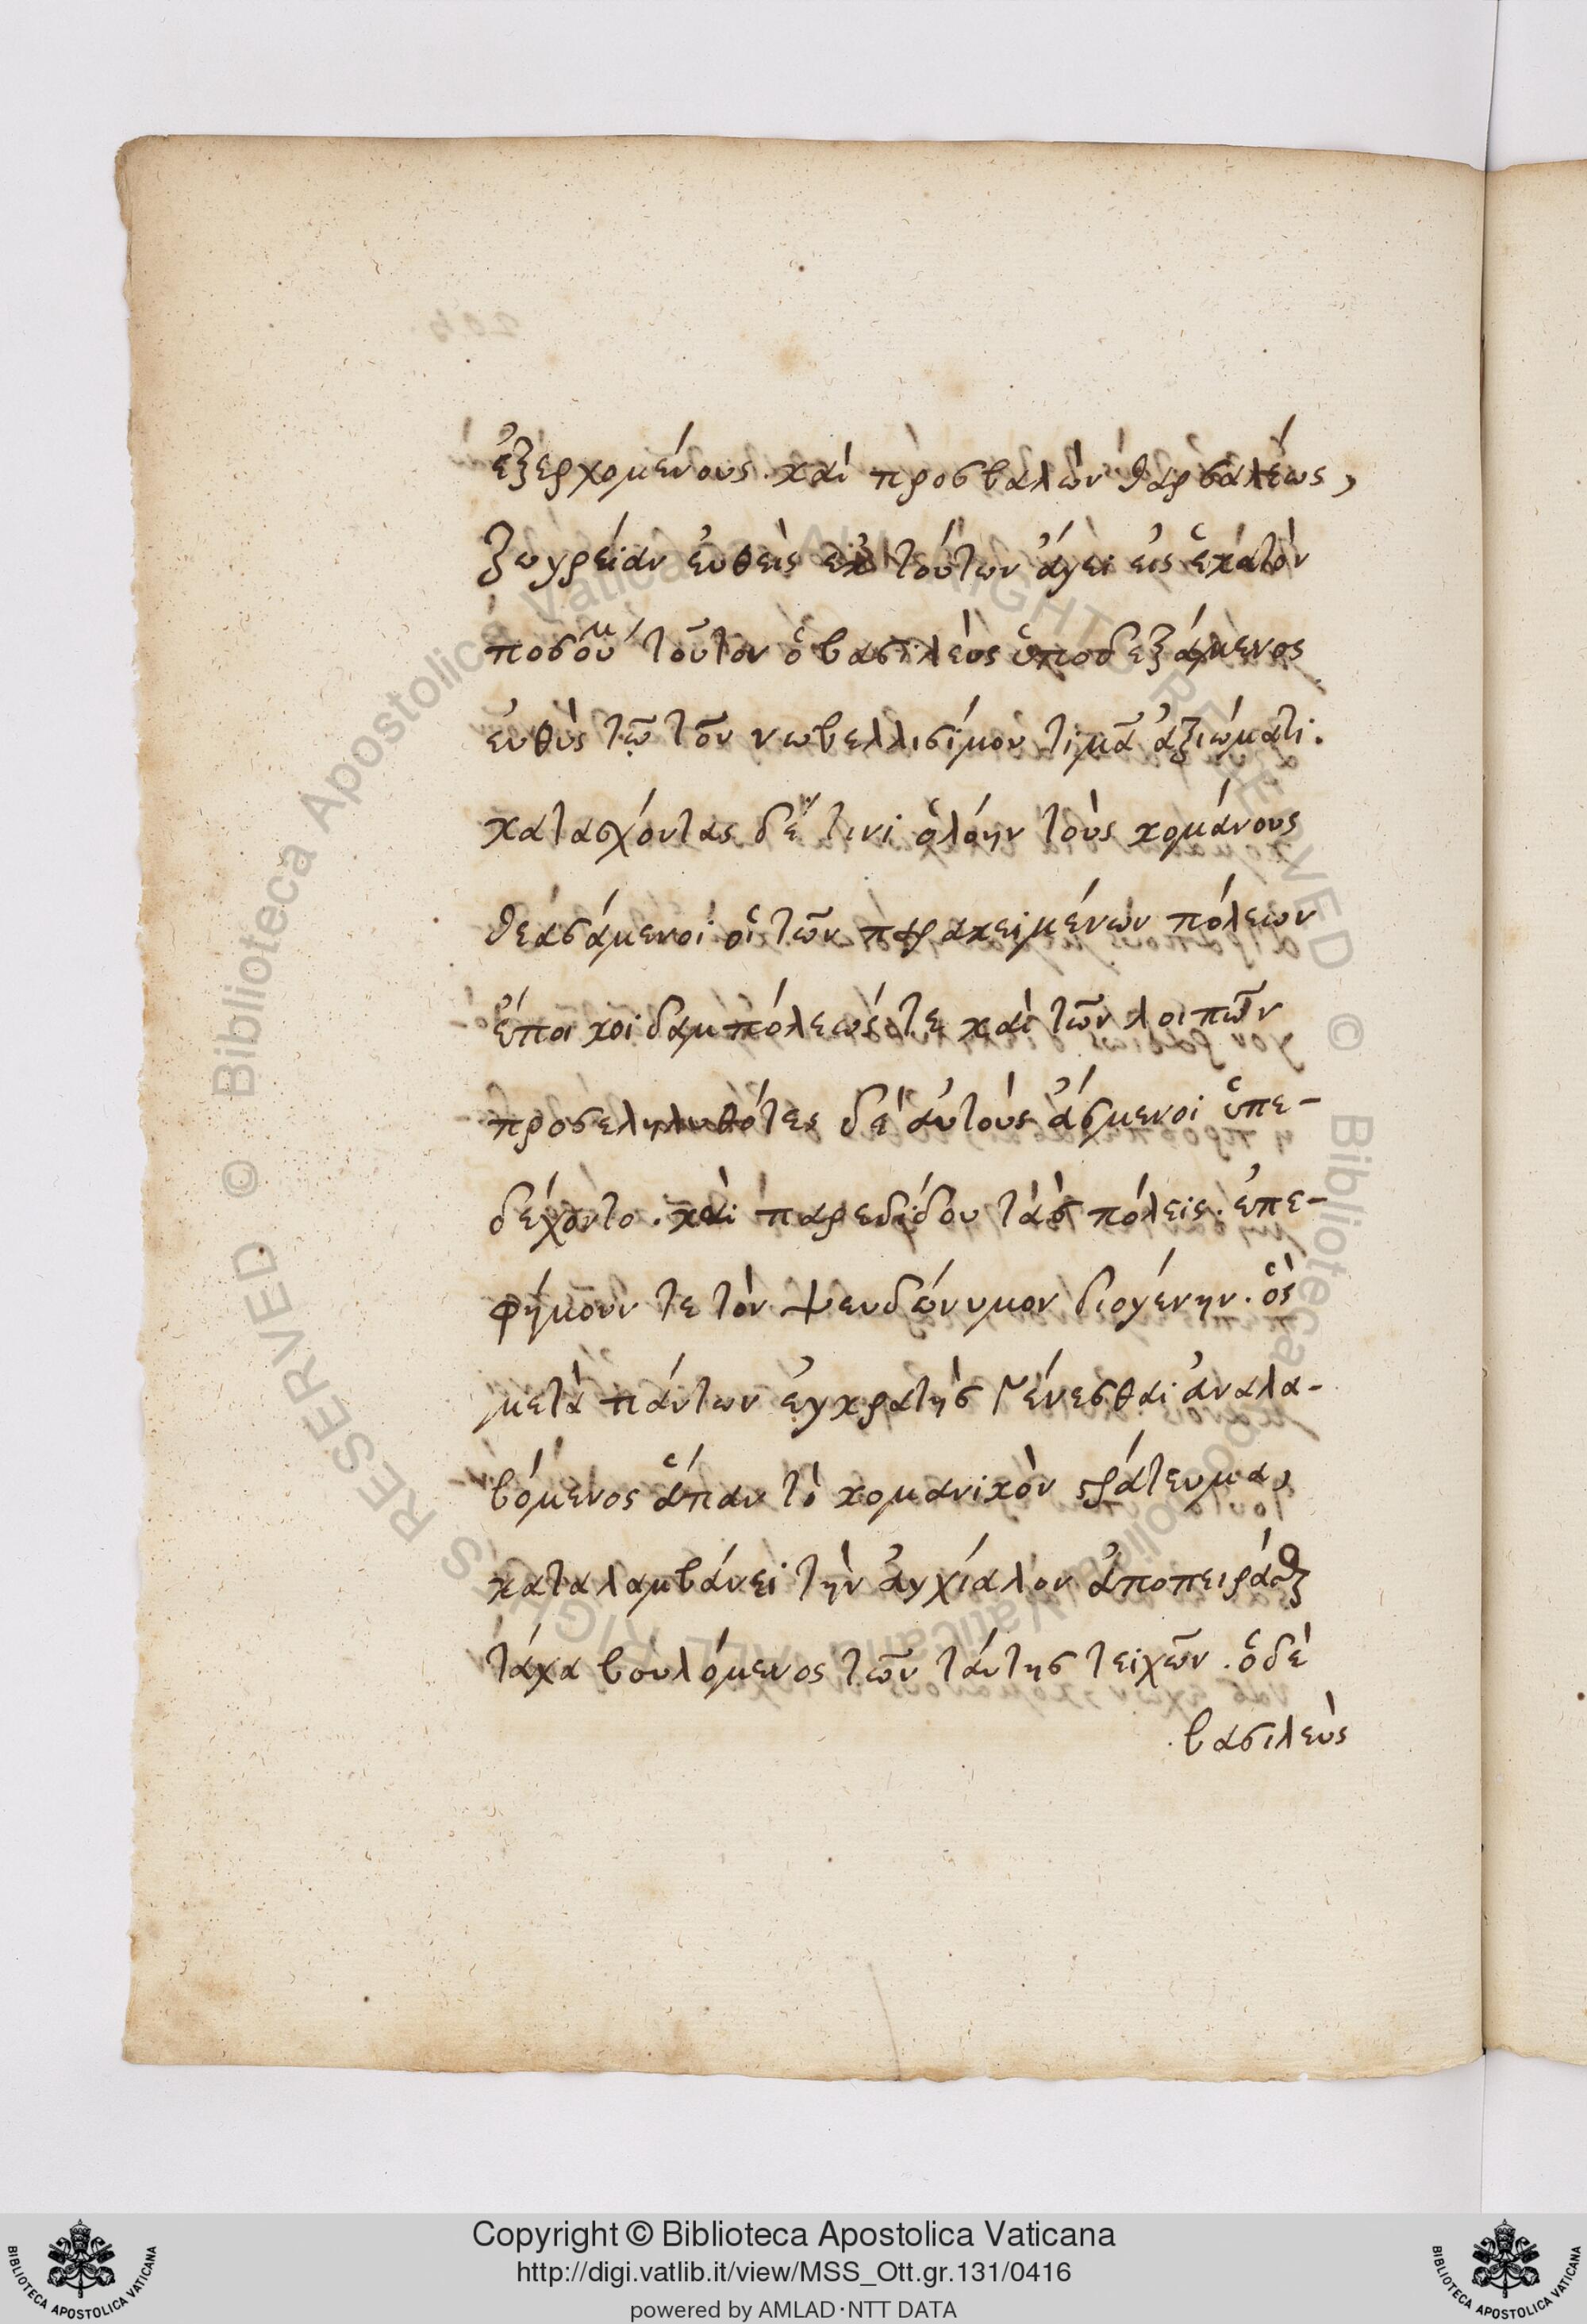 ἐξερχομένους. καὶ προσβαλὼν θαρσαλέως,
ζωγρείαν ἐυθεὶς ἐκ τούτων ἄγει εἰς ἑκατὸν
ποσοῦμ τοῦτον ὁ βασιλεὺς ὑποδεξάμενος
ἐυθὺς τῶ τὸν νωβελλισίμον τιμᾶ ἀξιώματι.
κατασχόντας δέ τινι ὁλόην τοὺς κομάνους
θεασάμενοι οἱ τῶν παρακειμένων πόλεων
ἔποι κοι δαμπόλεώς τε καὶ τῶν λοιπῶν
προσεληλυθότες δὲ ἀυτοὺς ἄσμενοι ὑπε-
δέχοντο. καὶ παρεδίδου τὰς πόλεις. ἐπε-
φήμουν τε τὸν ψευδώνυμον διογένην. ὃς
μετὰ πάντων ἐγκρατὴς γένεσθαι ἀναλα-
βόμενος ἅπαν τὸ κομανικὸν στράτευμα,
καταλαμβάνει τὴν ἀγχίαλον ἀποπειράσθαι
τάχα βουλόμενος τῶν τάυτης τειχῶν. ὁ δὲ
βασιλεὺς
Copyright © Biblioteca Apostolica Vaticana
http://digi.vatlib.it/view/MSS_Ott.gr.131/0416
powered by AMLAD·NTT DATA